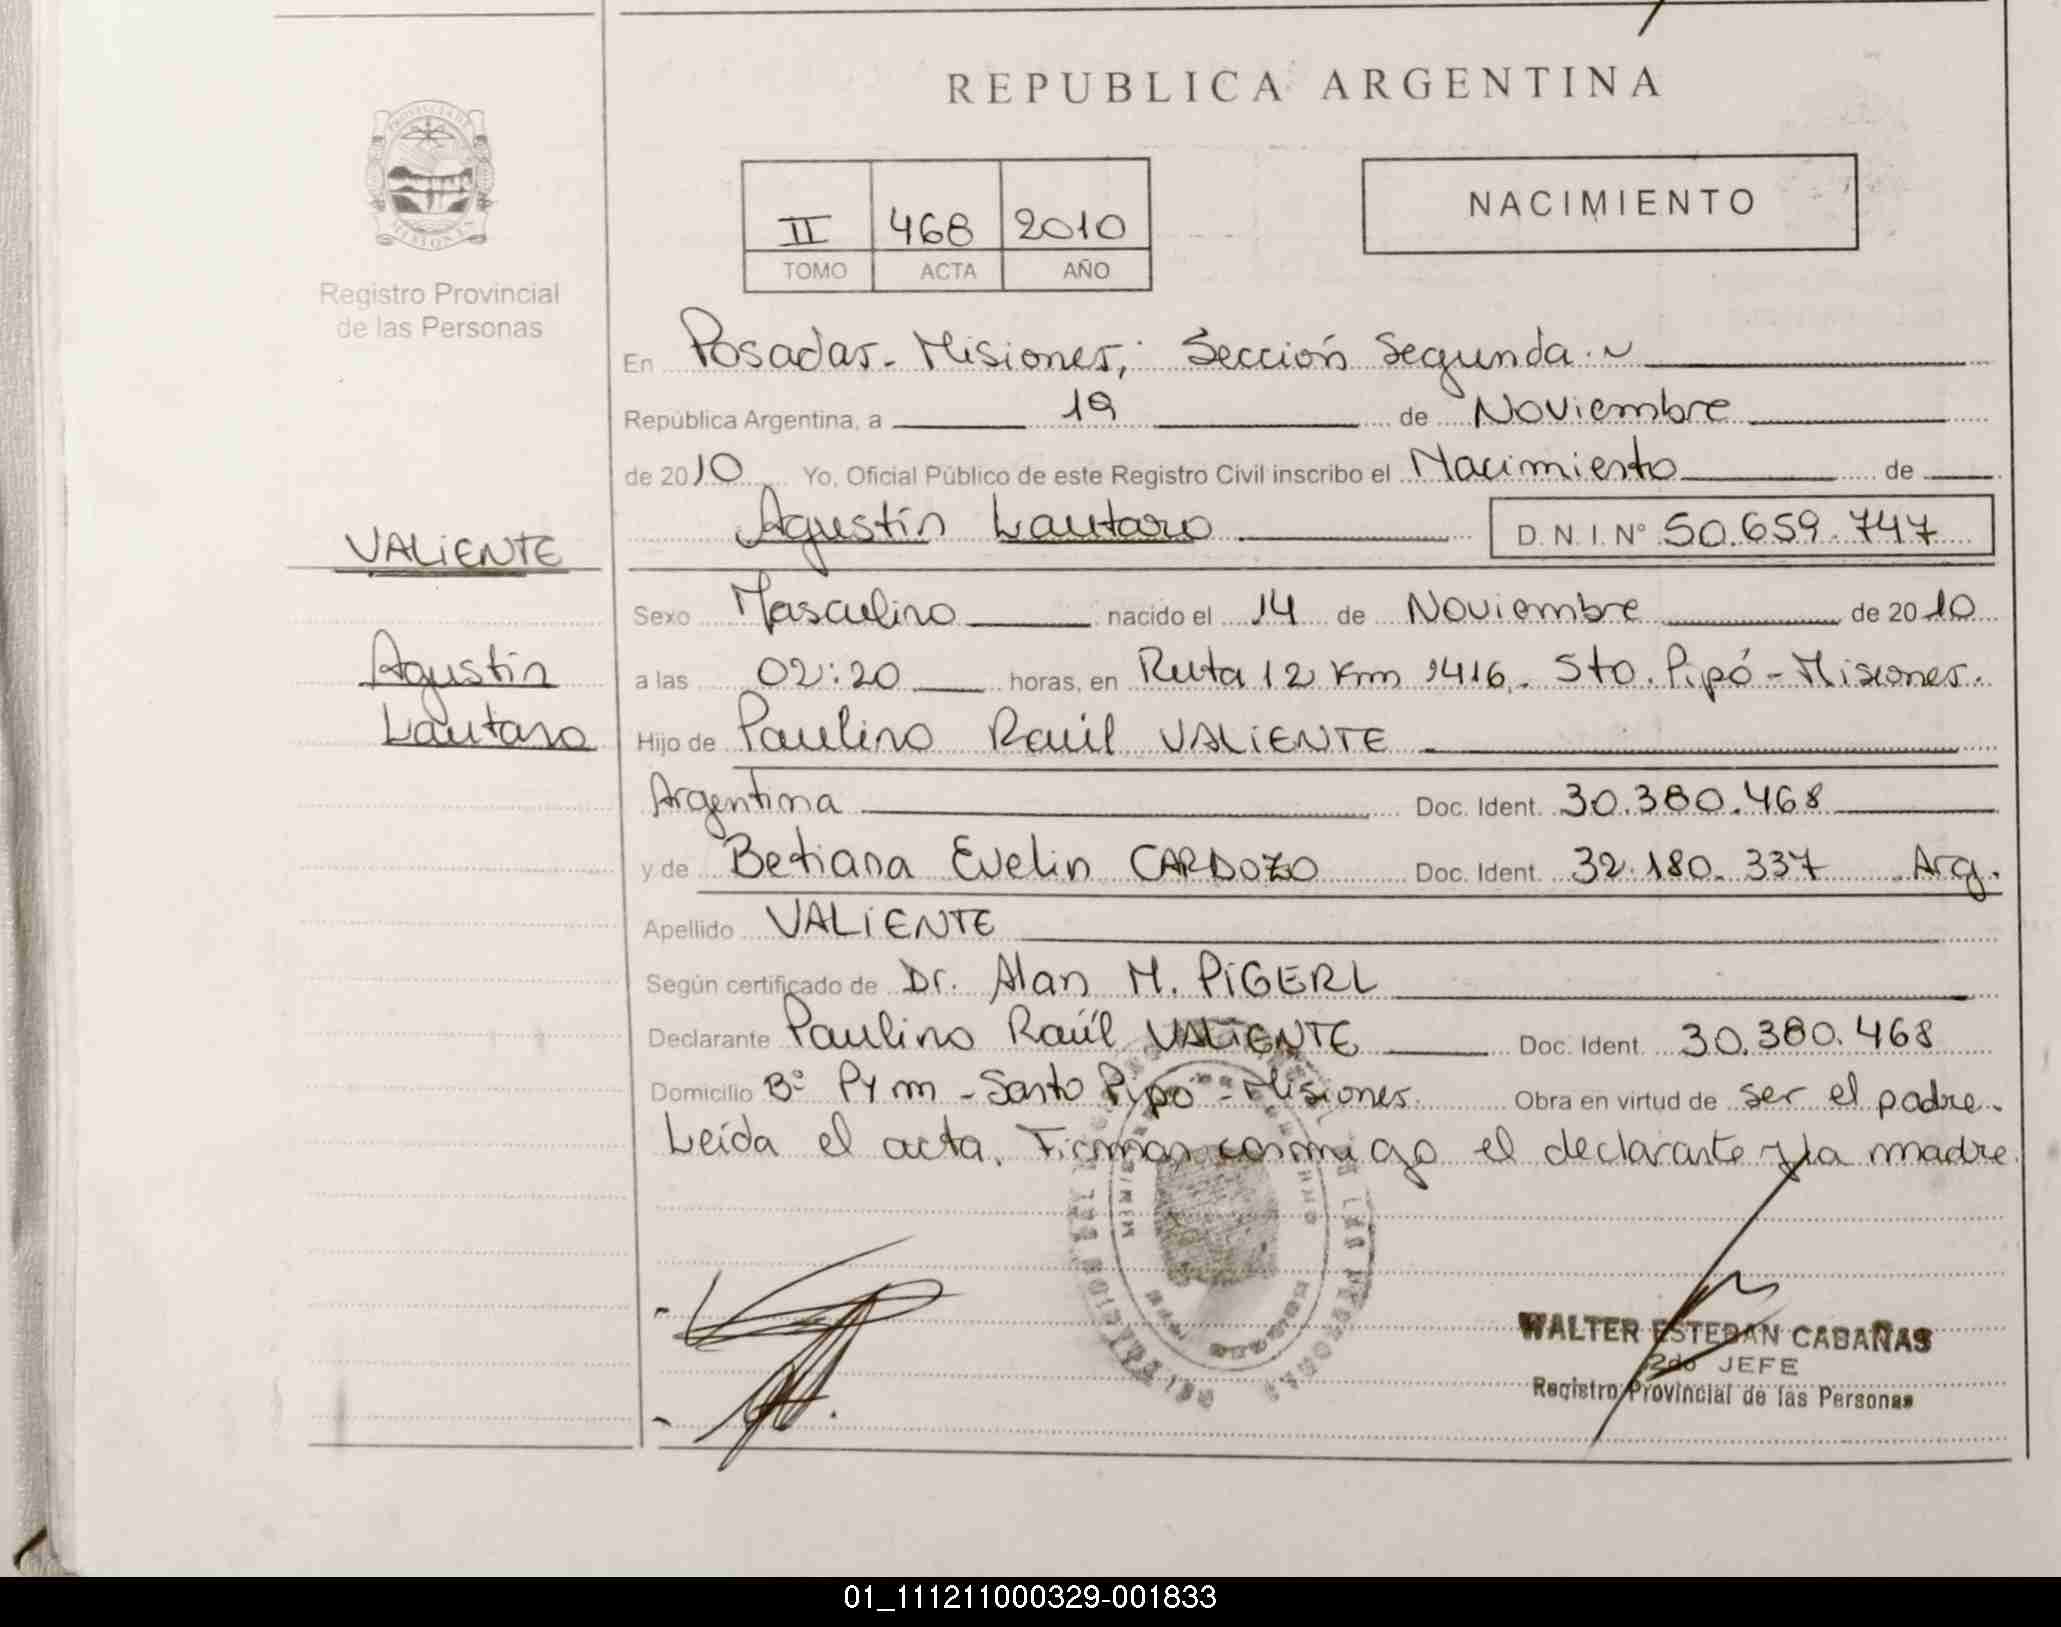 REPUBLICA ARGENTINA
NACIMIENTO
II 468 2010
TOMO ACTA AÑO
Registro Provincial
de las Personas
En Posadas - Misiones, Sección Segunda.
República Argentina, a 19 de Noviembre
de 2010 Yo, Oficial Público de este Registro Civil inscribo el Nacimiento de
Agustín Lautaro D.N.I.Nº 50.659.747
VALIENTE
Agustín
Lautaro
Sexo Masculino nacido el 14 de Noviembre de 2010
a las 02:20 horas, en Ruta 12 Km 1416. Sto. Pipó - Misiones.
Hijo de Paulino Raúl VALIENTE
Argentina Doc. Ident. 30.380.468
y de Betiana Evelin CARDOZO Doc. Ident. 32.180.337 Arg.
Apellido VALIENTE
Según certificado de Dr. Alan M. PIGERL
Declarante Paulino Raúl VALIENTE Doc. Ident. 30.380.468
Domicilio Bº Pym - Santo Pipó - Misiones Obra en virtud de ser el padre.
Leída el acta. Firman conmigo el declarante y la madre
WALTER ESTEBAN CABAÑAS
2do JEFE
Registro Provincial de las Personas
01_111211000329-001833